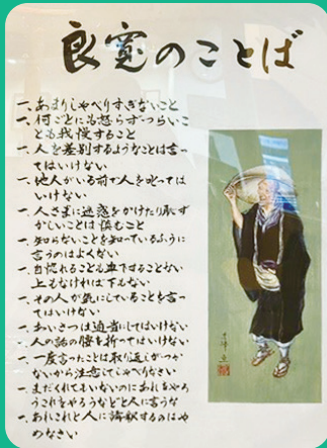 良寛のことば
一、あまりしゃべりすぎないこと
一、何ごとにも怒らずつらいこ
とも我慢すること
一、人を差別するようなことは言っ
てはいけない
一、他人がいる前で人を叱っては
いけない
一、人さまに迷惑をかけたり恥ず
かしいことは慎むこと
一、知らないことを知っているふうに
言うのはよくない
一、自惚れることも卑下することもない
上もなければ下もない
一、その人が気にしていることを言っ
てはいけない
一、あいさつは適当にしてはいけない
一、人の話の腰を折ってはいけない
一、一度言ったことは取り返しがつか
ないから注意してしゃべりなさい
一、まだくれてもいないのにあれをやろ
うこれをやろうなどと人に言うな
一、あれこれと人に講釈するのはや
めなさい